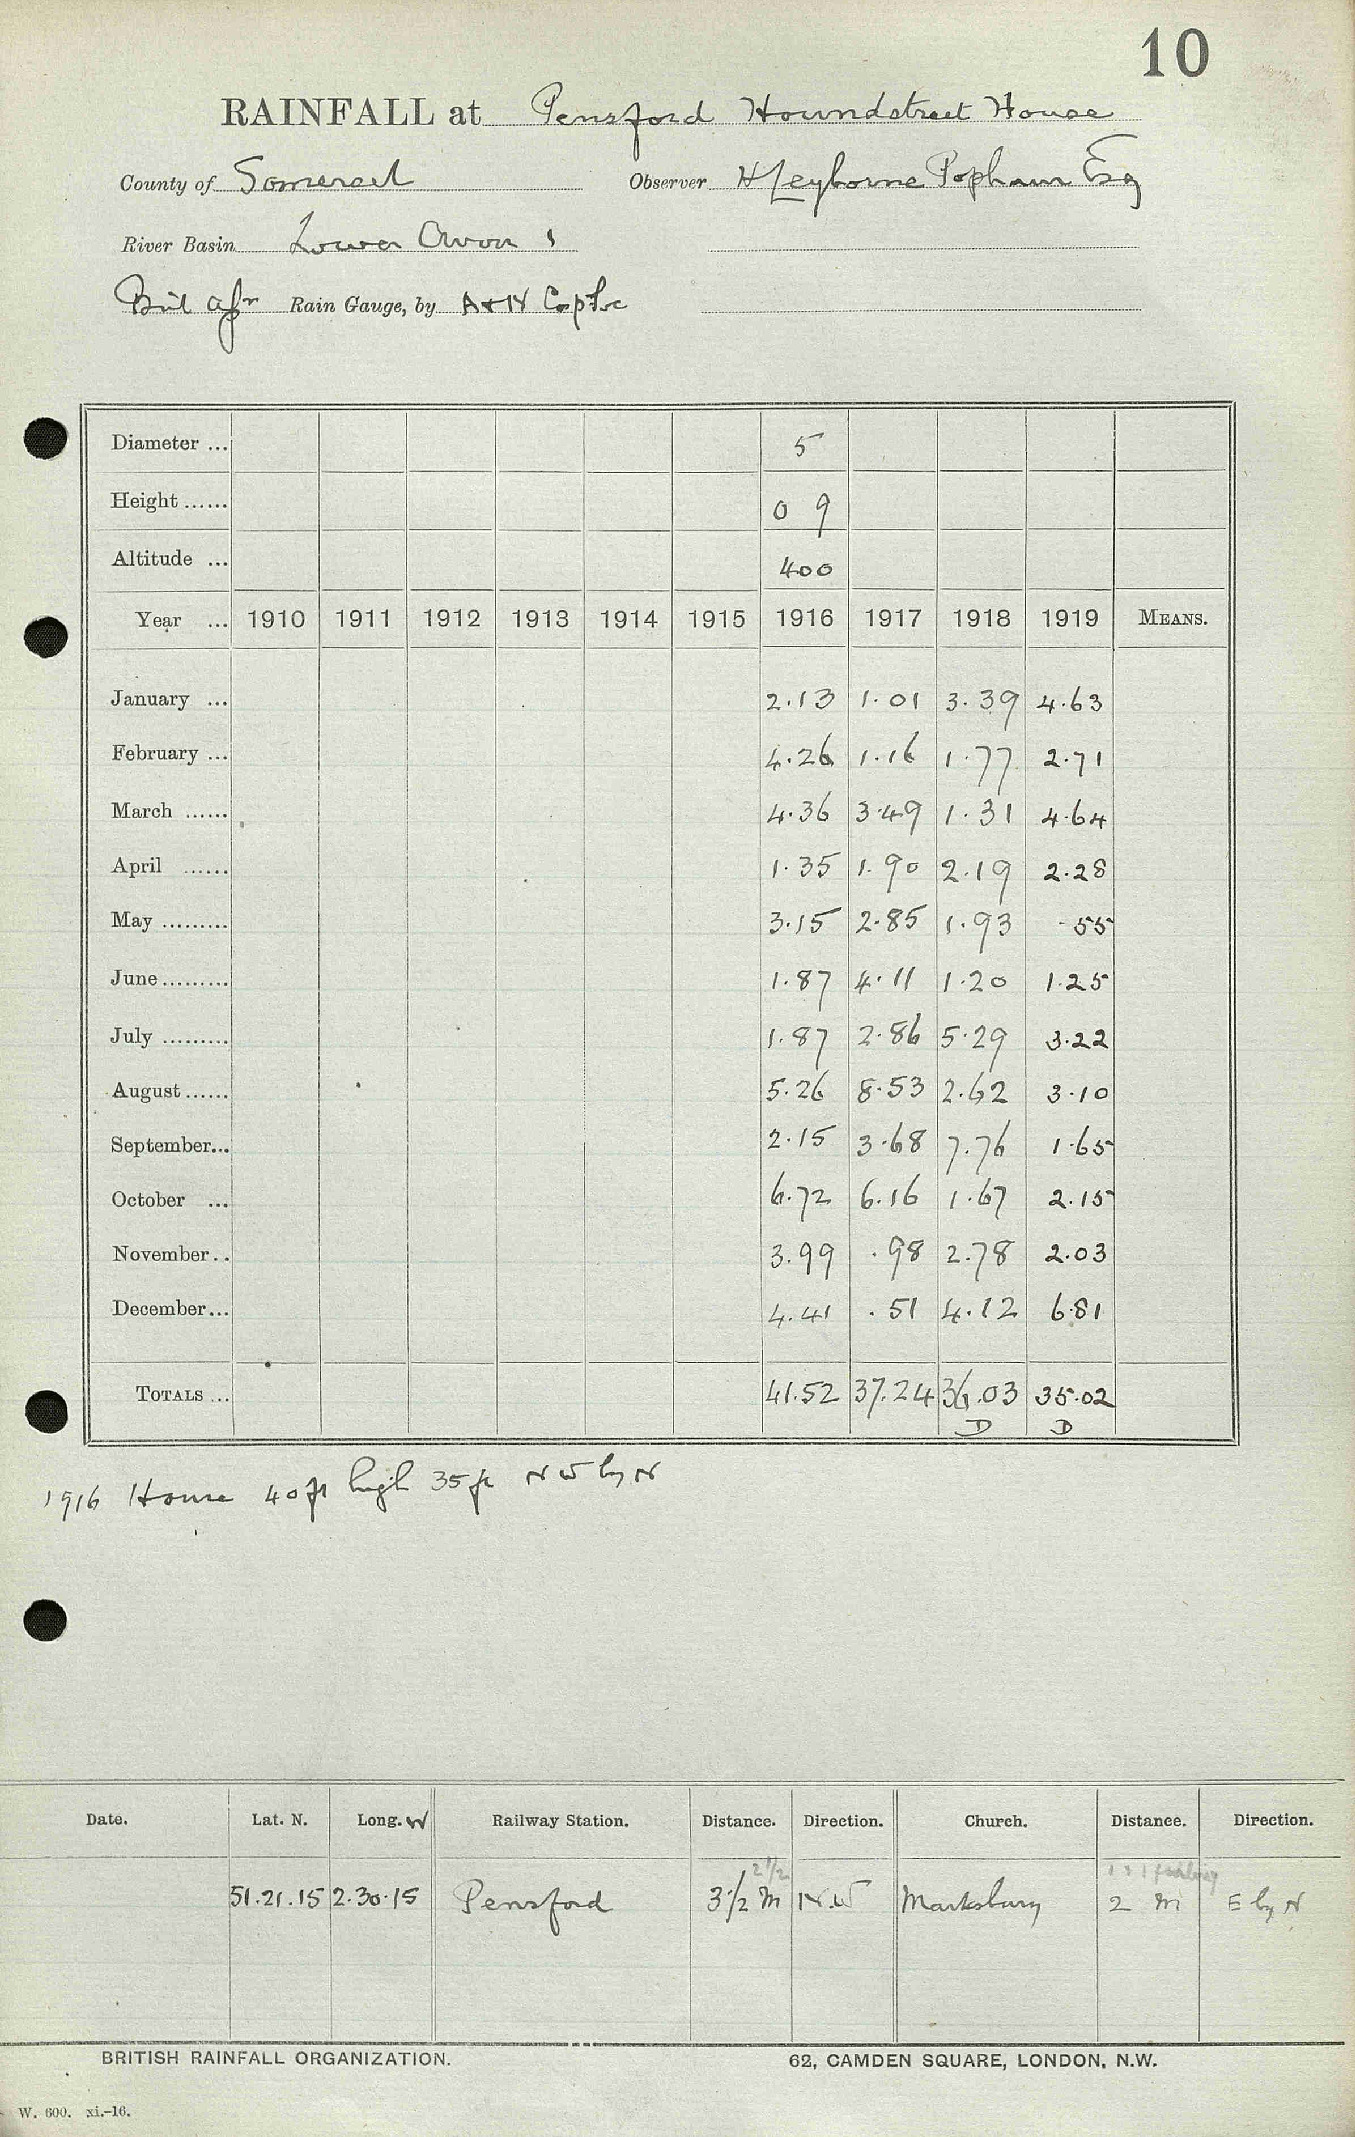 10
RAINFALL at Pensford Houndstreet House
County of Somerset Observer H Leyborne Popham Esq
River Basin Lower Avon 1
Rain Gauge, by A & N Coop Soc
Diameter ... 5
Height ...... 0 9
Altitude ... 400
Year ... 1910 1911 1912 1913 1914 1915 1916 1917 1918 1919 MEANS.
January ... 2.13 1.01 3.39 4.63
February ... 4.26 1.16 1.77 2.71
March ...... 4.36 3.49 1.31 4.64
April ...... 1.35 1.90 2.19 2.28
May ......... 3.15 2.85 1.93 .55
June ......... 1.87 4.11 1.20 1.25
July ......... 1.87 2.86 5.29 3.22
August ...... 5.26 8.53 2.62 3.10
September... 2.15 3.68 7.76 1.65
October ... 6.72 6.16 1.67 2.15
November .. 3.99 .98 2.78 2.03
December... 4.41 .51 4.12 6.81
TOTALS ... 41.52 37.24 36.03 35.02
D D
1916 House 40 ft high 35 ft N W by N
Date. Lat. N. Long. W Railway Station. Distance. Direction. Church. Distance. Direction.
2 1/2
51.21.15 2.30.15 Pensford 3 1/2 m N.W Marksbury 2 m E by N
BRITISH RAINFALL ORGANIZATION. 62, CAMDEN SQUARE, LONDON, N.W.
W. 600. xi.-16.